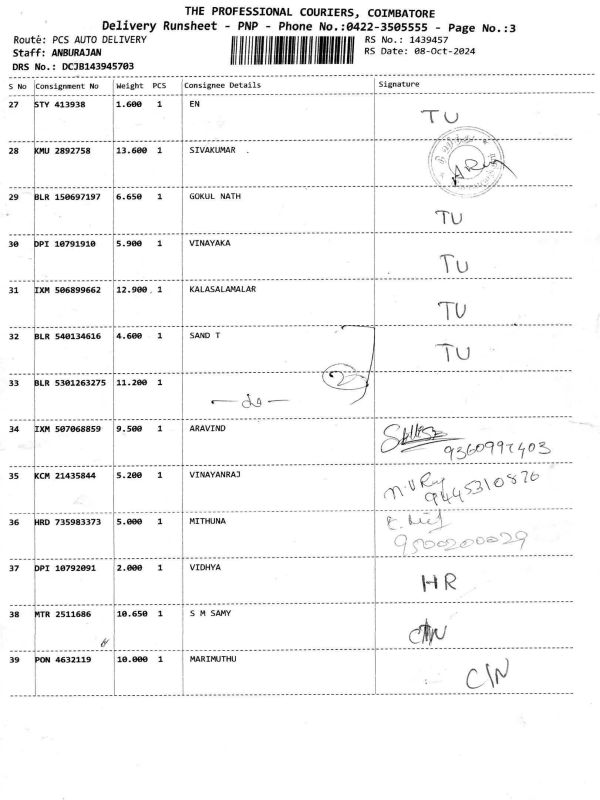 THE PROFESSIONAL COURIERS, COIMBATORE
Delivery Runsheet - PNP - Phone No.:0422-3505555 - Page No.:3
Route: PCS AUTO DELIVERY RS No.: 1439457
Staff: ANBURAJAN RS Date: 08-Oct-2024
DRS No.: DCJB143945703
S No Consignment No Weight PCS Consignee Details Signature
27 STY 413938 1.600 1 EN TU
28 KMU 2892758 13.600 1 SIVAKUMAR
29 BLR 150697197 6.650 1 GOKUL NATH TU
30 DPI 10791910 5.900 1 VINAYAKA TU
31 IXM 506899662 12.900 1 KALASALAMALAR TU
32 BLR 540134616 4.600 1 SAND T TU
33 BLR 5301263275 11.200 1
— do — 2
34 IXM 507068859 9.500 1 ARAVIND
9360997403
35 KCM 21435844 5.200 1 VINAYANRAJ
9445310876
36 HRD 735983373 5.000 1 MITHUNA
9500200029
37 DPI 10792091 2.000 1 VIDHYA HR
38 MTR 2511686 10.650 1 S M SAMY C/N
39 PON 4632119 10.000 1 MARIMUTHU C/N